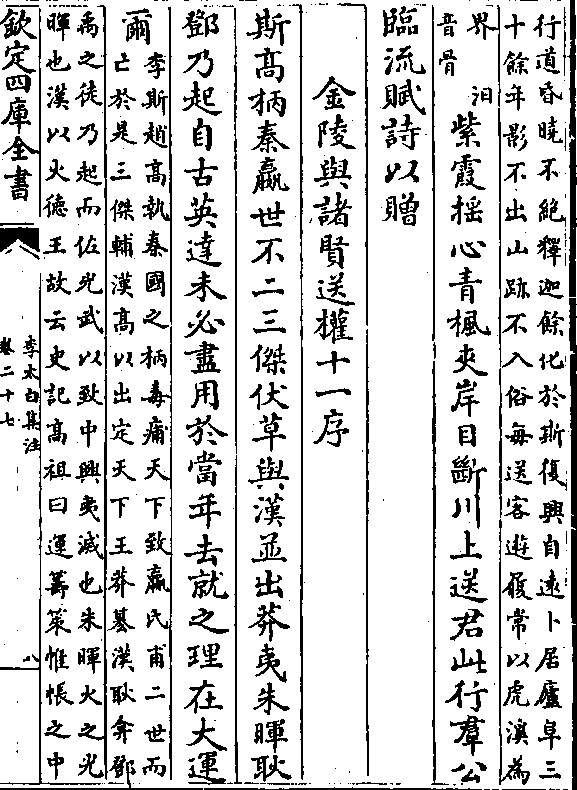 行道昏曉不絶釋迦餘化於斯復興自遠卜居廬阜三
十餘年影不出山跡不入俗每送客遊履常以虎溪為
界 汩
音骨
紫霞揺心青楓夾岸目斷川上送君此行羣公
臨流賦詩以贈
金陵與諸賢送權十一序
斯髙柄秦嬴世不二三傑伏草與漢並出莽夷朱暉耿
鄧乃起自古英達未必盡用於當年去就之理在大運
爾
李斯趙髙執秦國之柄毒痡天下致嬴氏甫二世而
亡於是三傑輔漢髙以出定天下王莽簒漢耿弇鄧
禹之徒乃起而佐光武以致中興夷滅也朱暉火之光
暉也漢以火德王故云史記髙祖曰運籌策帷帳之中
欽定四庫全書
李太白集注
卷二十七
八